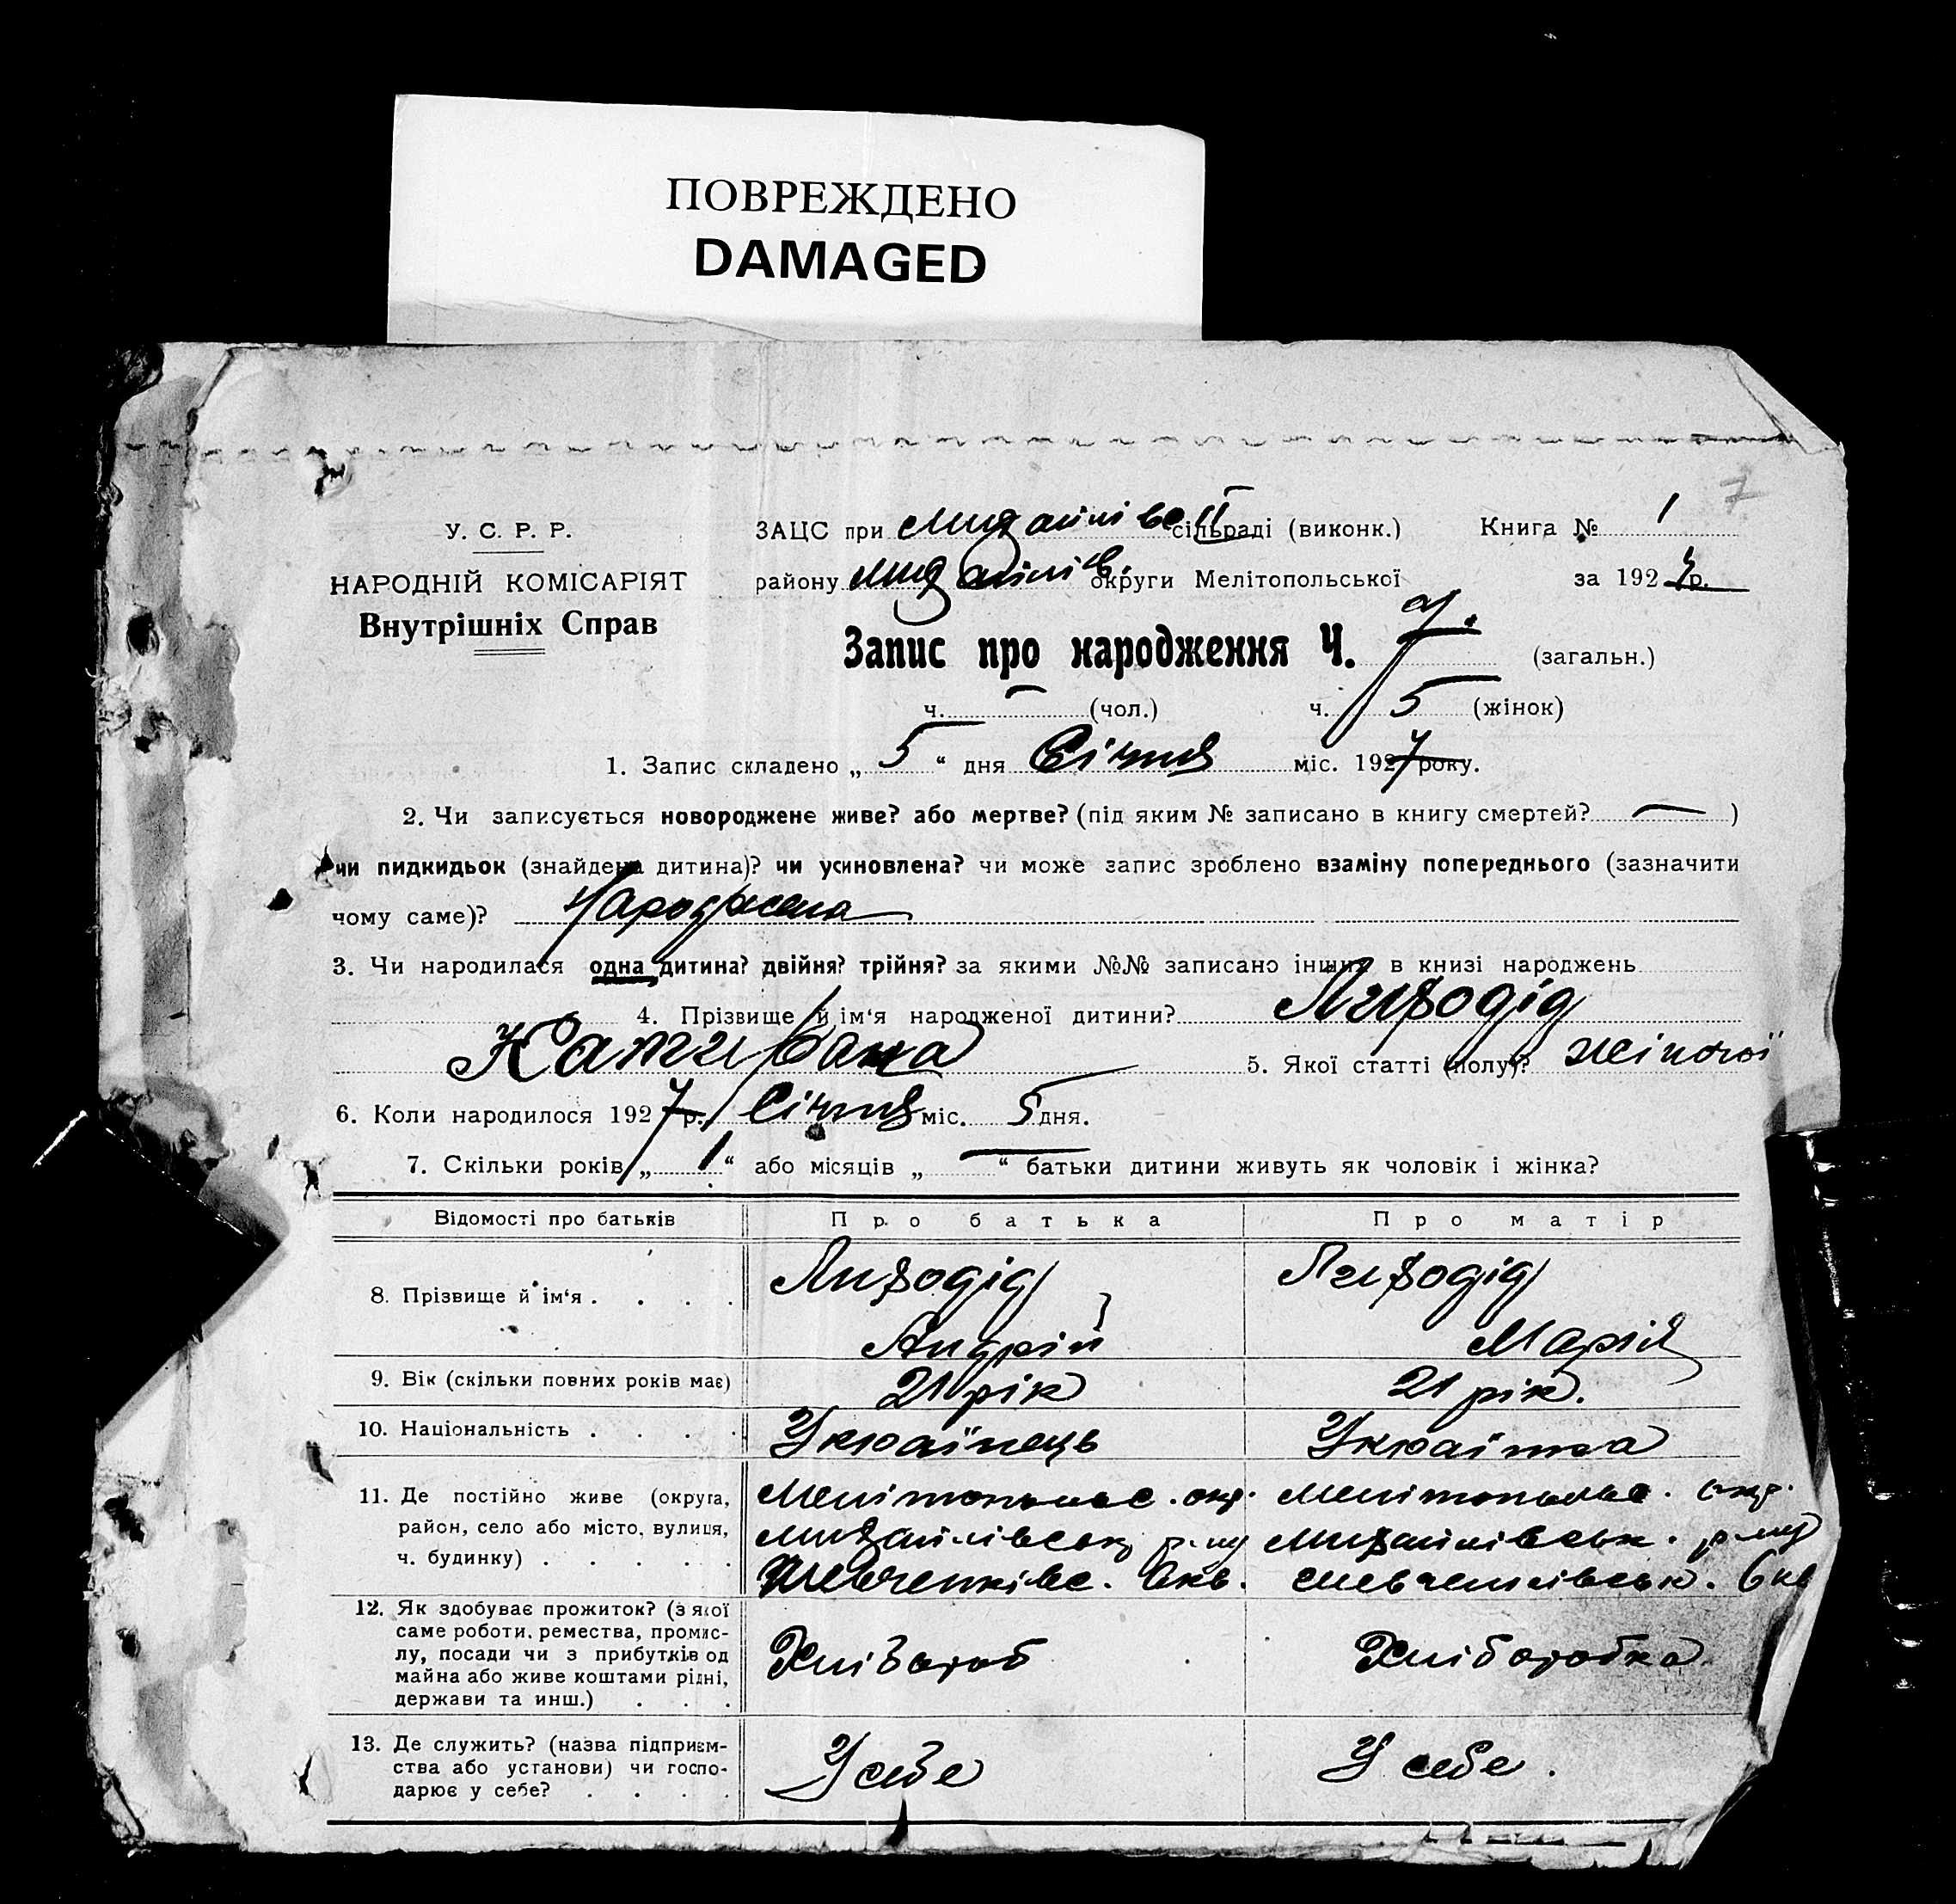 ПОВРЕЖДЕНО
DAMAGED
7
У. С. Р. Р.
НАРОДНІЙ КОМІСАРІЯТ
Внутрішніх Справ
ЗАЦС при сільраді (виконк.) Книга № 1
району Михайлів. округи Мелітопольської за 1927 р.
Запис про народження Ч. (загальн.)
ч. — (чол.) ч. 5 (жінок)
1. Запис складено „ 5 “ дня Січня міс. 1927 року.
2. Чи записується новороджене живе? або мертве? (під яким № записано в книгу смертей? — )
чи пидкидьок (знайдена дитина)? чи усиновлена? чи може запис зроблено взаміну попереднього (зазначити
чому саме)? Народжена
3. Чи народилася одна дитина? двійня? трійня? за якими №№ записано інших в книзі народжень
4. Прізвище й ім‘я народженої дитини? Лиходід
5. Якої статті (полу)? жіночої
6. Коли народилося 1927 р. Січня міс. 5 дня.
7. Скільки років „ 1 “ або місяців „ — “ батьки дитини живуть як чоловік і жінка?
Відомості про батьків Про батька Про матір
8. Прізвище й ім‘я . . . . Лиходід Лиходід
Андрій Марія
9. Вік (скільки повних років має) 21 рік 21 рік.
10. Національність . . . . Українець Українка
11. Де постійно живе (округа, Мелітопольс. окр. Мелітопольс. окр.
район, село або місто, вулиця, Михайлівськ. р-ну Михайлівськ. р-ну
ч. будинку) . . . . . Шевченківс. Шевченківськ.
12. Як здобуває прожиток? (з якої
саме роботи, ремества, промис-
лу, посади чи з прибутків од Хлібороб Хліборобка
майна або живе коштами рідні,
держави та инш.) . . .
13. Де служить? (назва підприєм-
ства або установи) чи госпо- У себе У себе.
дарює у себе? . . . .